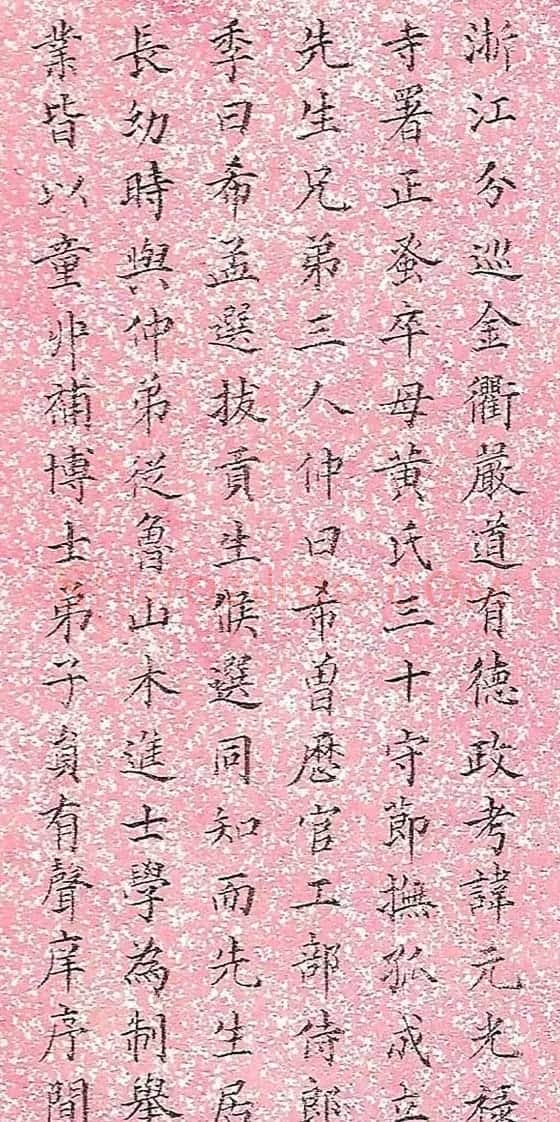 浙江分巡金衢嚴道有德政考諱元光祿
寺署正蚤卒母黃氏三十守節撫孤成立
先生兄弟三人仲曰希曾歷官工部侍郎
季曰希孟選拔貢生候選同知而先生居
長幼時與仲弟從魯山木進士學為制舉
業皆以童丱補博士弟子員有聲庠序間